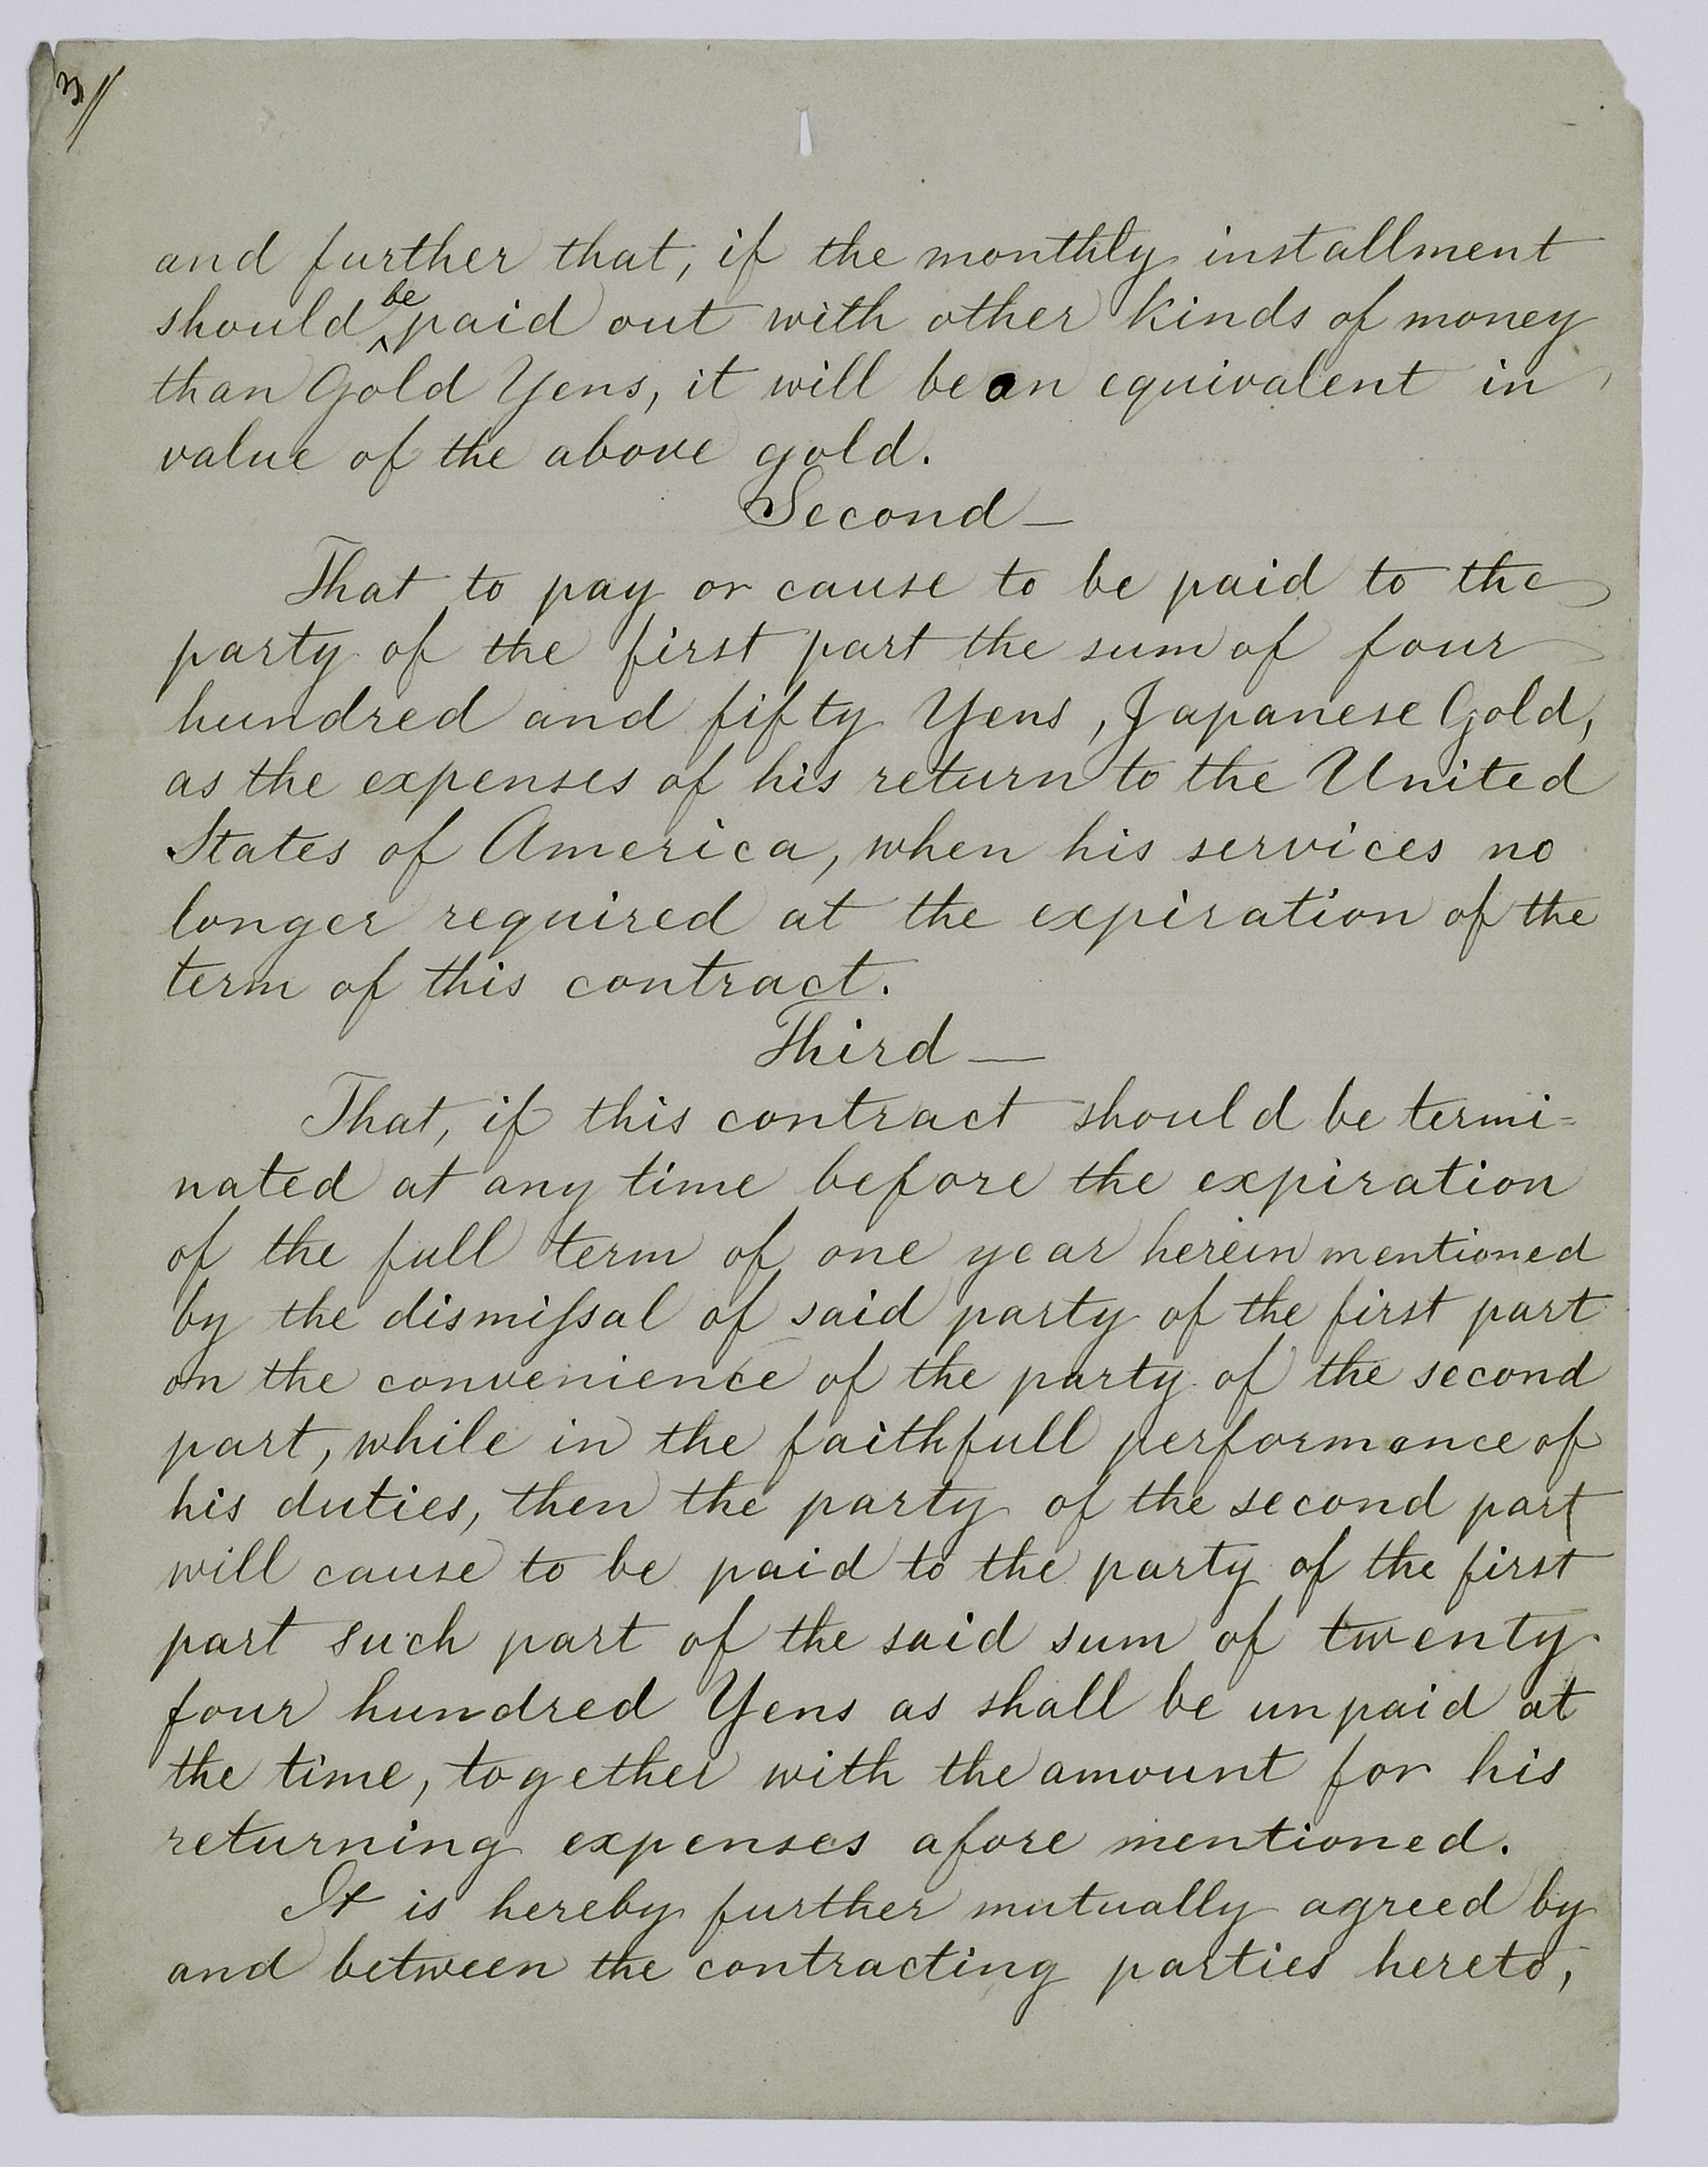 3//
and further that, if the monthly installment
should be paid out with other kinds of money
than Gold Yens, it will be an equivalent in
value of the above gold.
Second —
That to pay or cause to be paid to the
party of the first part the sum of four
hundred and fifty Yens, Japanese Gold,
as the expenses of his return to the United
States of America, when his services no
longer required at the expiration of the
term of this contract.
Third —
That, if this contract should be termi=
nated at any time before the expiration
of the full term of one year herein mentioned
by the dismiſsal of said party of the first part
on the convenience of the party of the second
part, while in the faithfull performance of
his duties, then the party of the second part
will cause to be paid to the party of the first
part such part of the said sum of twenty
four hundred Yens as shall be unpaid at
the time, together with the amount for his
returning expenses afore mentioned.
It is hereby further mutually agreed by
and between the contracting parties hereto,